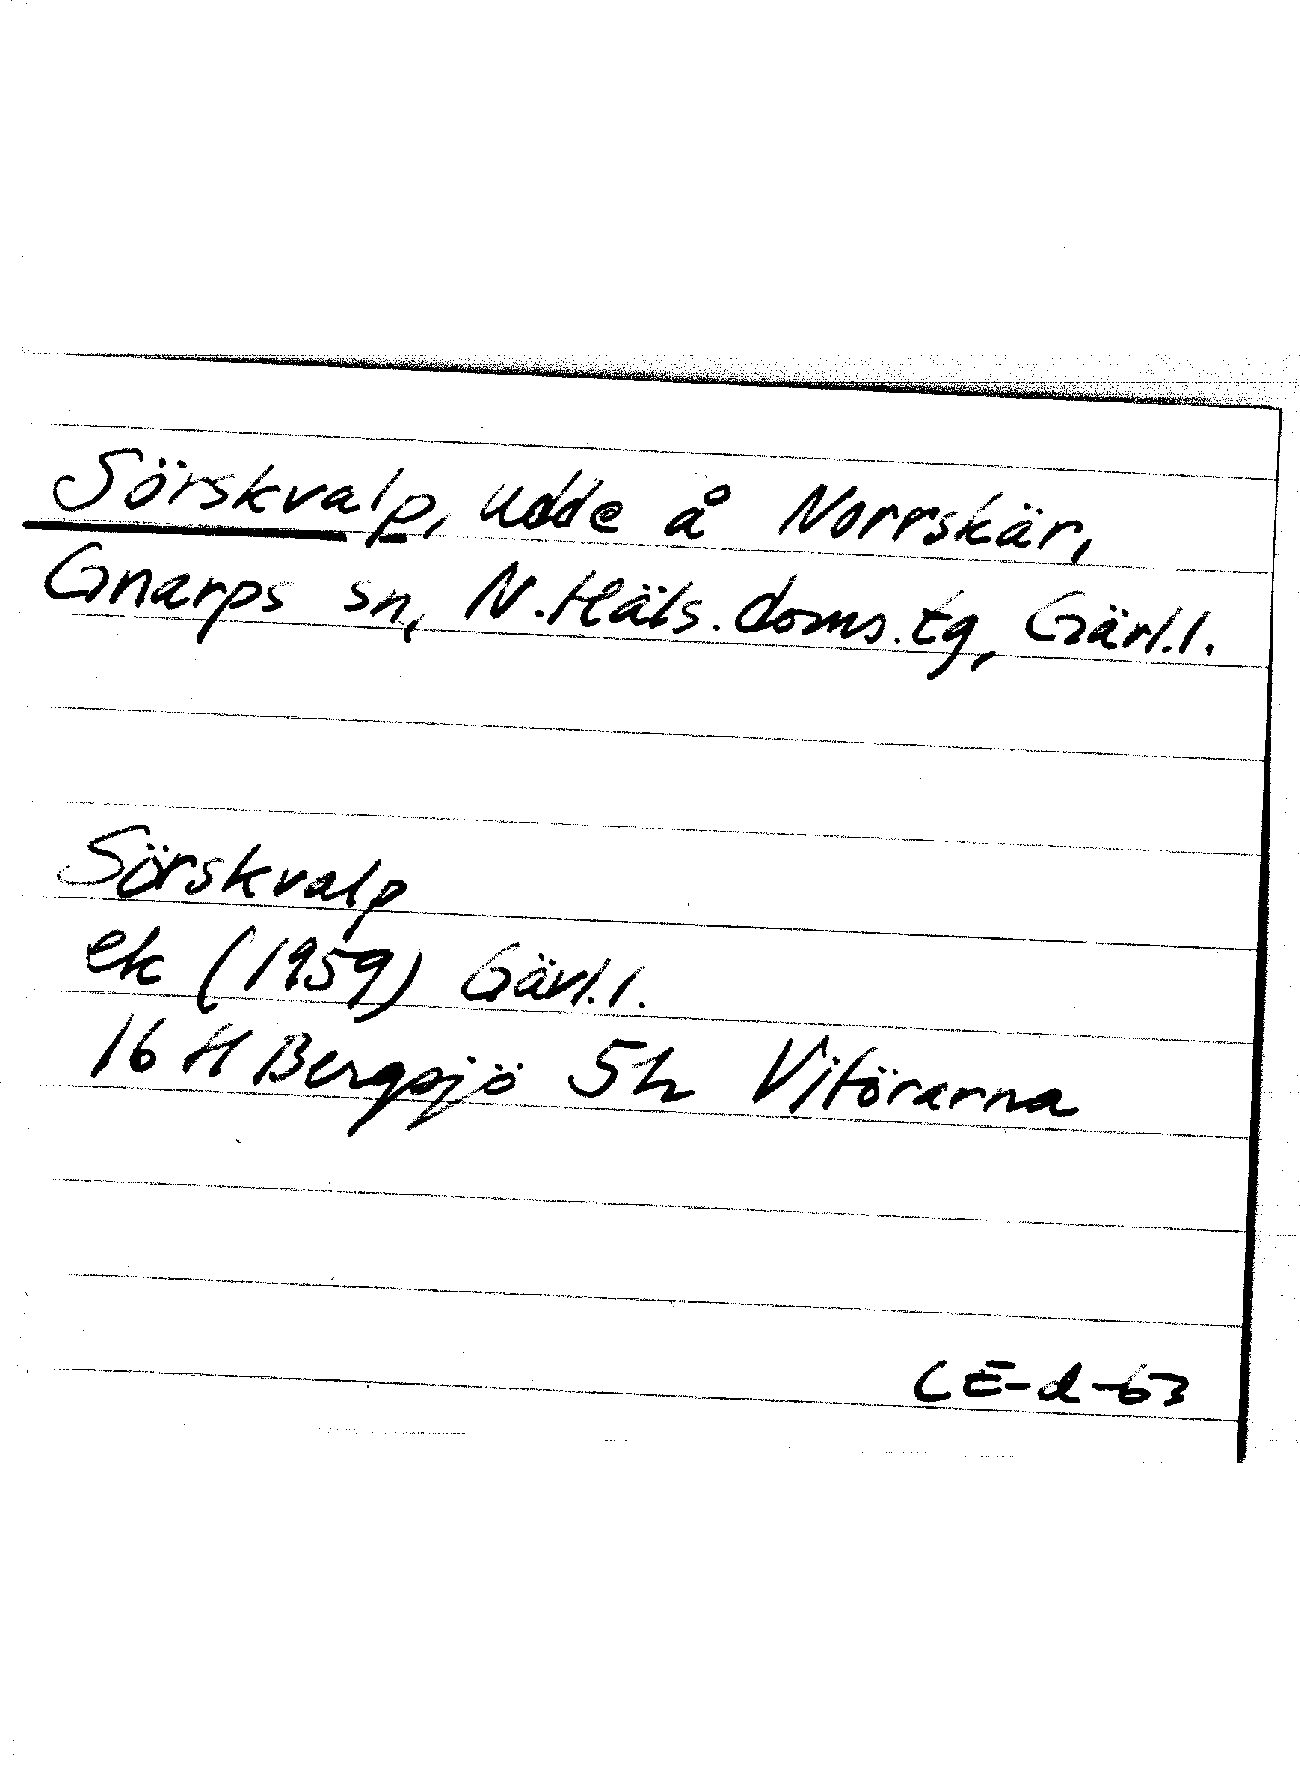 Sörskvalp, udde å Norrskär,
Gnarps sn, N. Häls. doms. tg, Gävl. l.
Sörskvalp
ek (1959) Gävl. l.
16 H Bergsjö 5h Vitörarna
CE-d-63